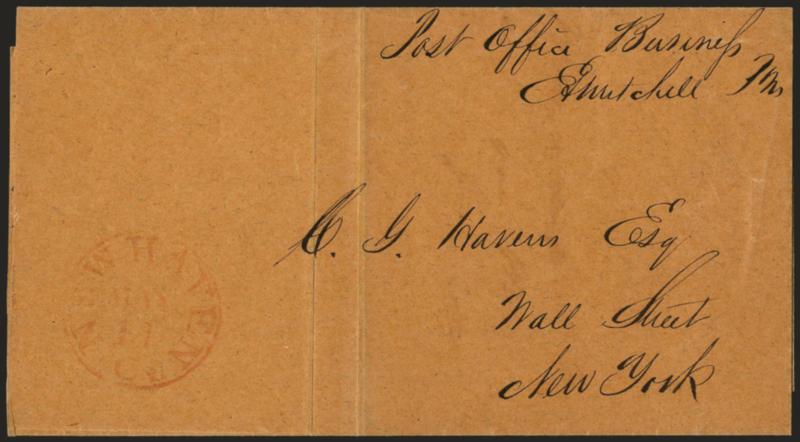 Post Office Business
E Mitchell PM
C. G. Havens Esq
Wall Street
New York
NEW HAVEN
CT